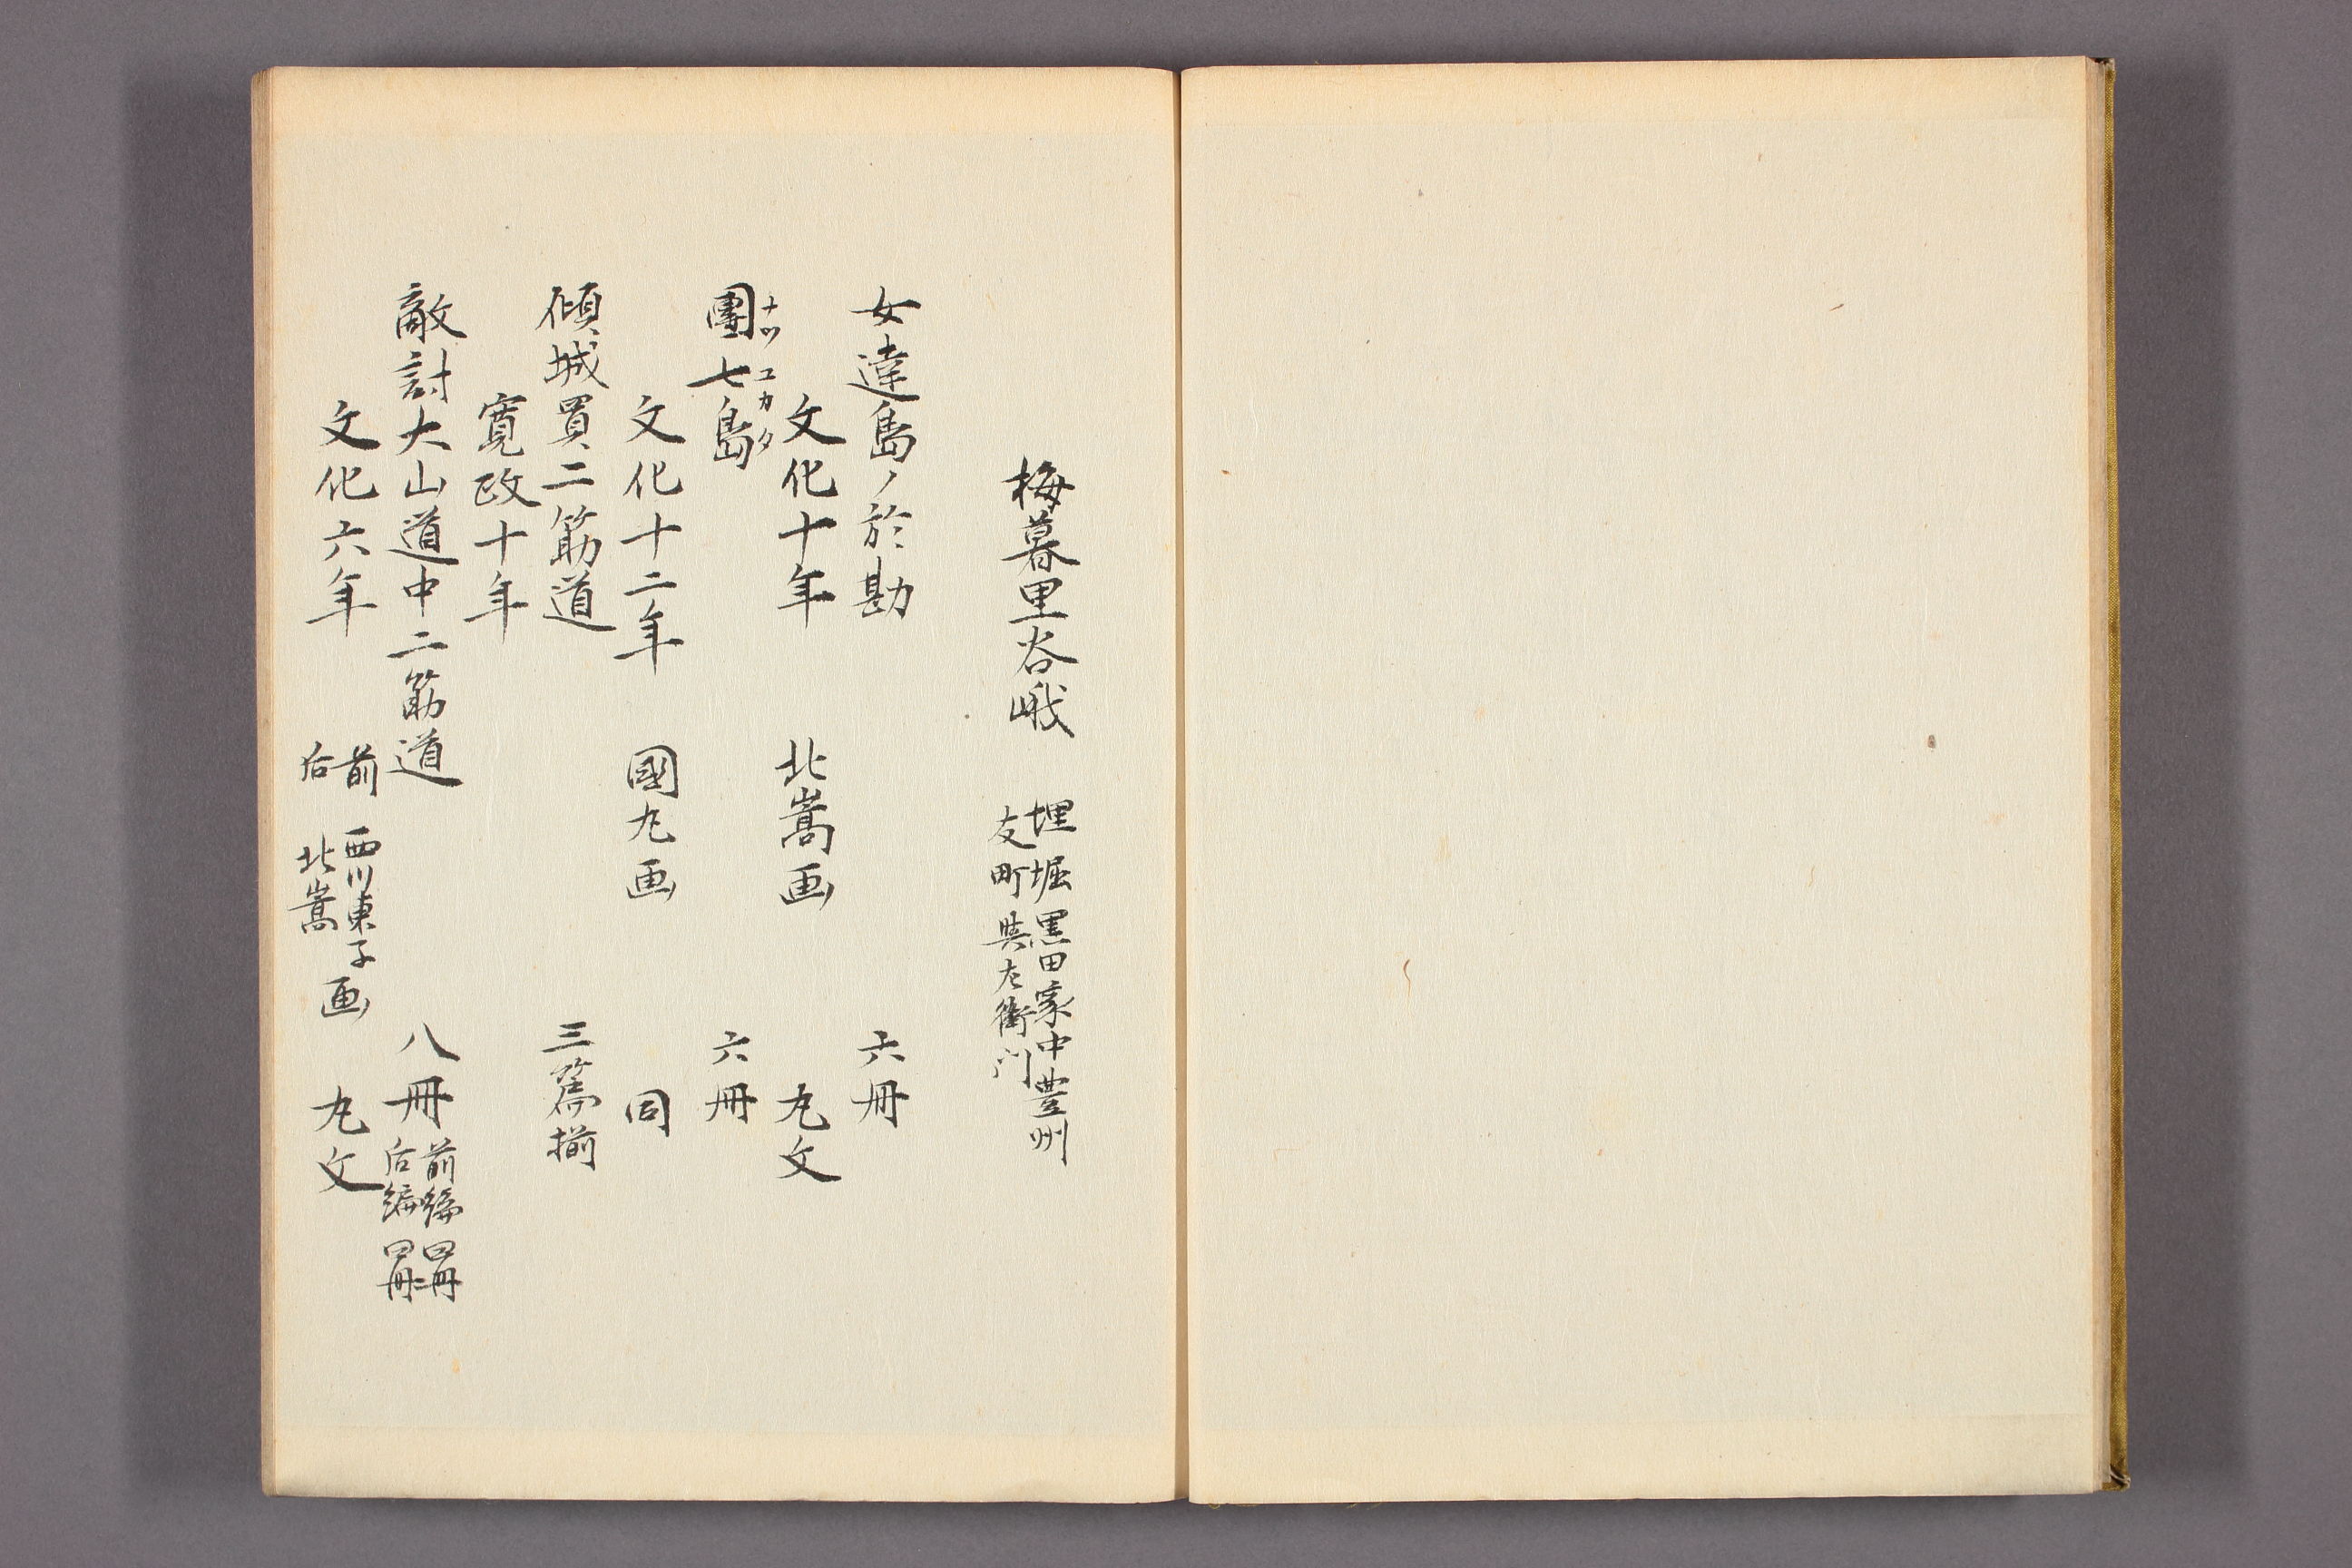 梅暮里谷峨
埋堀黒田家中豊州
友町與左衛門
女達島ノ於勘 六冊
文化十年 北嵩画 丸文
團七島 六冊
ナツ ユカタ
文化十二年 國丸画 同
傾城買二筋道 三篇揃
寛政十年
敵討大山道中二筋道 八冊 前編四冊 后編四冊
文化六年 前 西川東子 后 北嵩 画 丸文